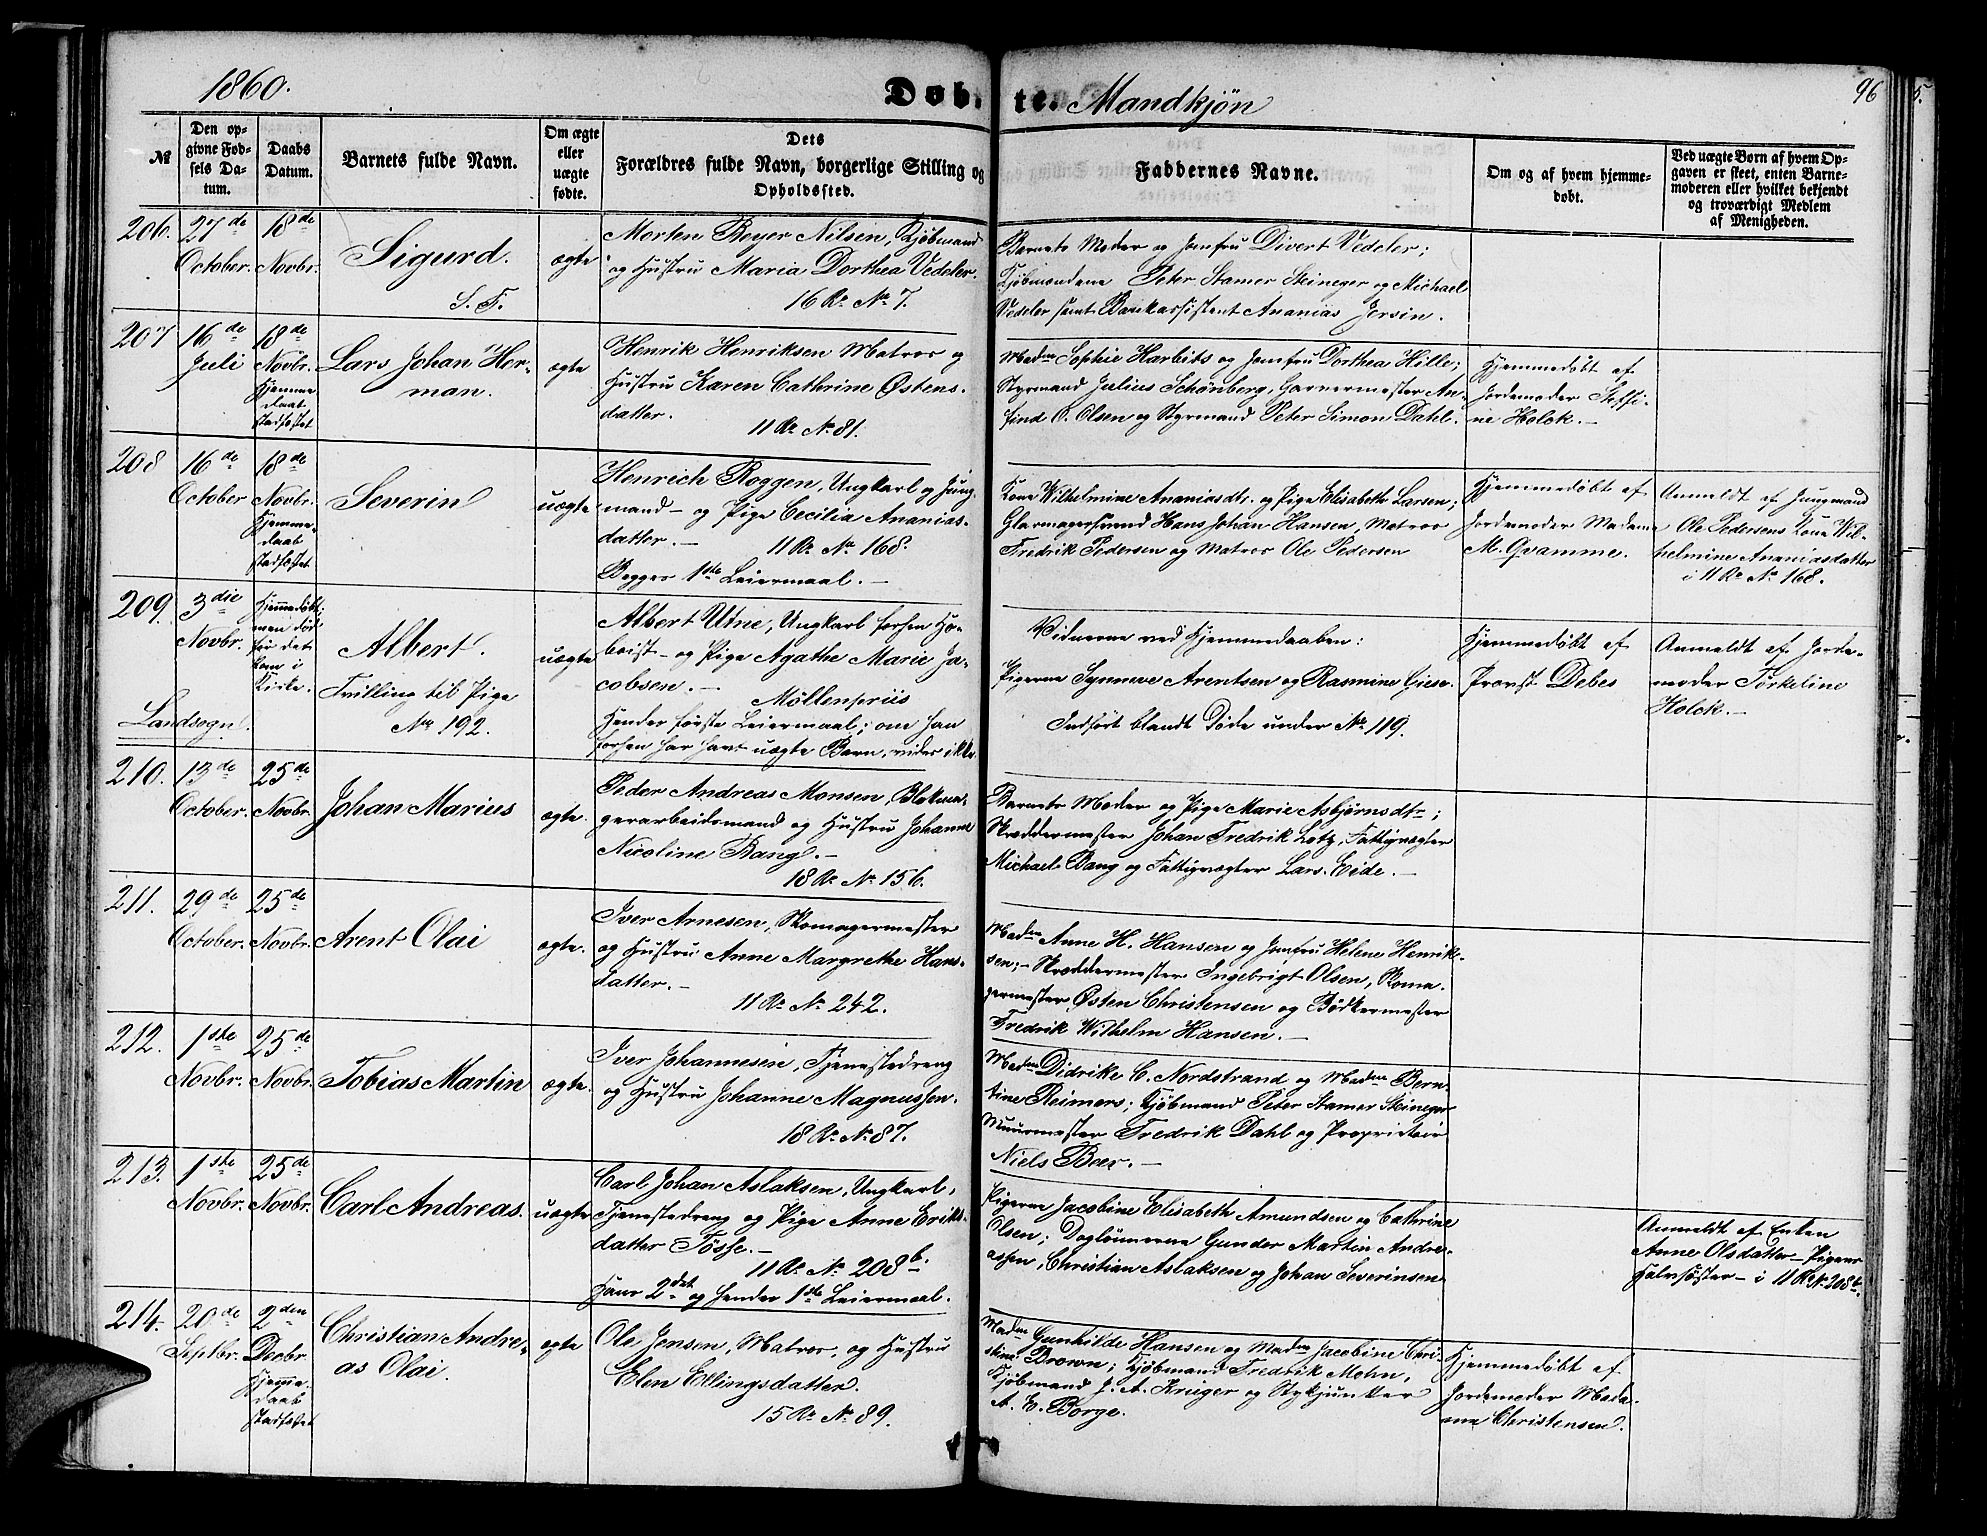 1860.
Døbte. Mandkjøn
96
№
Den opgivne Fødsels Datum.
Daabs Datum.
Barnets fulde Navn.
Om ægte eller uægte fødte.
Dets Forældres fulde Navn, borgerlige Stilling og Opholdssted.
Faddernes Navne.
Om og af hvem hjemmedøbt.
Ved uægte Børn af hvem Opgaven er skeet, enten Barnemoderen eller hvilket bekjendt og troværdigt Medlem af Menigheden.
206. 27de October. 18de Novbr.
Sigurd.
S. F.
ægte
Morten Beyer Nilsen, Kjøbmand
og Hustru Maria Dorthea Vedeler.
16 R. No 7.
Barnets Moder og Jomfru Divert Vedeler;
Kjøbmændene Peter Stamer Steineger og Michael
Vedeler samt Bankassistent Ananias Jersin.
207 16de Juli 18de Novbr. Hjemmedaab stadfæstet
Lars Johan Herman.
ægte
Henrik Henriksen Matros og
Hustru Karen Cathrine Østensdatter.
11 R. No 81.
Madme Sophie Harbitz og Jomfru Dorthea Hille;
Styrmand Julius Schønberg, Garvermester Anfind O. Olsen og Styrmand Peter Simon Dahl.
Hjemmedøbt af
Jordemoder Seffine Holck.—
208 16de October 18de Novbr. Hjemmedaab stadfæstet
Severin
uægte
Henrich Roggen, Ungkarl og Jungmand- og Pige Cecilia Ananiasdatter.—
11 R. No 168.
Begges 1ste Leiermaal.—
Kone Wilhelmine Ananiasdtr. og Pige Elisabeth Larsen;
Glarmagersvend Hans Johan Hansen, Matros
Fredrik Pedersen og Matros Ole Pedersen
Hjemmedøbt af
Jordemoder Madame
M. Gvamme.
Anmeldt af Jungmand
Ole Pedersens Kone Wilhelmine Ananiasdatter
i 11 R. No 168.
209. 3die Novbr. Hjemmedøbt; men død før det kom i Kirke.
Landsogn.
Albert.
Tvilling til Pige
No 192.
uægte
Albert Utne, Ungkarl forhen Hoboist- og Pige Agathe Marie Jacobsen.—
Møllenpriis
Hendes første Leiermaal; om han
forhen har havt uægte Børn, vides ikke.
Vidnerne ved Hjemmedaaben:
Pigerne Synneve Arentsen og Rasmine Giese.
Indført blandt Døde under No 119.
Hjemmedøbt af
Provst Debes
Anmeldt af Jordemoder Torkeline
Holck.—
210. 13de October. 25de Novbr
Johan Marius
ægte.
Peder Andreas Monsen, Blokmagerarbeidsmand og Hustru Johanne
Nicoline Bang.—
18 R. No 156.
Barnets Moder og Pige Marie Asbjørnsdtr;
Skræddermester Johan Fredrik Lotz, Fattigvægter
Michael Bang og Fattigvægter Lars Eide.—
211. 29de October. 25de Novbr.
Arent Olai
ægte.
Iver Arnesen, Skomagermester
og Hustru Anne Margrethe Hansdatter.—
11 R. No 242.
Madme Anne H. Hansen og Jomfru Helene Henriksen;- Skræddermester Ingebrigt Olsen, Skomagermester Østen Christensen og Bødkermester
Fredrik Wilhelm Hansen.—
212. 1ste Novbr. 25de Novbr.
Tobias Martin
ægte.
Iver Johannesen, Tjenestedreng
og Hustru Johanne Magnussen.
18 R. No 87.
Madme Didrike C. Nordstrand og Madme Berntine Reimers; Kjøbmand Peter Stamer Steineger
Muurmester Fredrik Dahl og Proprietair
Niels Boer.—
213. 1ste Novbr. 25de Novbr.
Carl Andreas.
uægte
Carl Johan Aslaksen, Ungkarl,
Tjenestedreng og Pige Anne Eriksdatter Tosse.—
11 R. No 208b.
Hans 2det og hendes 1ste Leiermaal.
Pigerne Jacobine Elisabeth Amundsen og Cathrine
Olsen; Daglønnerne Gunder Martin Andreassen, Christian Aslaksen og Johan Severinsen
Anmeldt af Enken
Anne Olsdatter- Pigens
Halvsøster- i 11 R. No 208b.
214. 20de Septbr. 2den Decbr. Hjemmedaab stadfæstet
Christian Andreas Olai.
ægte
Ole Jensen, Matros, og Hustru
Elen Ellingsdatter.
15 R. No 89.
Madme Gunhilde Hansen og Madme Jacobine Christine Brown; Kjøbmand Fredrik Mohn,
Kjøbmand J. A. Krüger og Stykjunker
A. E. Borge.
Hjemmedøbt af
Jordemoder Madame Christensen.